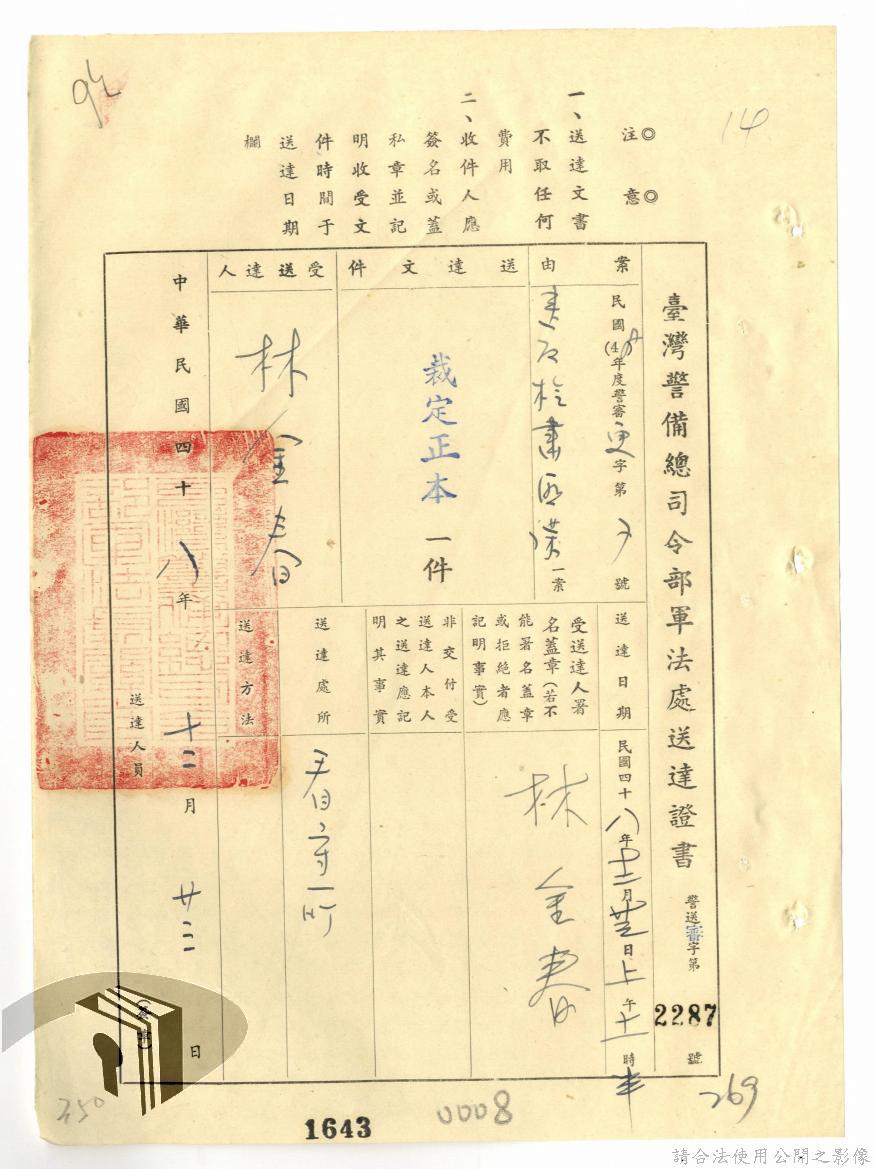 94
14
◎注意◎
一、送達文書
不取任何
費用
二、收件人應
簽名或蓋
私章並記
明收受文
件時間于
送達日期
欄
臺灣警備總司令部軍法處送達證書
警送審字第2287號
案由
民國(4)年度警審更字第號
一案
送達文件
裁定正本一件
受送達人
林金春
送達日期
民國四十八年十二月日上午十一時半
受送達人署
名蓋章(若不
能署名蓋章
或拒絕者應
記明事實)
林金春
非交付受
送達人本人
之送達應記
明其事實
送達處所
看守所
送達方法
中華民國四十八年十二月廿三日
送達人員
(簽章)
269
350
1643
0008
請合法使用公開之影像